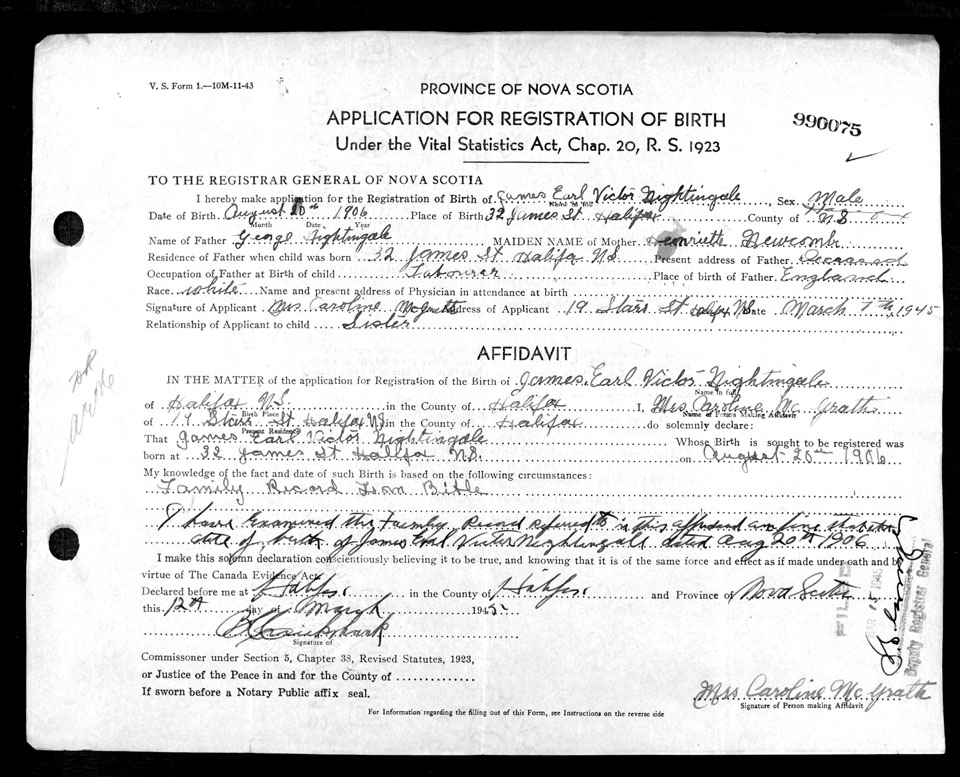 V. S. Form 1.—10M-11-43
PROVINCE OF NOVA SCOTIA
APPLICATION FOR REGISTRATION OF BIRTH
990075
Under the Vital Statistics Act, Chap. 20, R. S. 1923
TO THE REGISTRAR GENERAL OF NOVA SCOTIA
I hereby make application for the Registration of Birth of James Earl Victor Nightingale, Sex Male
Name in full
Date of Birth August 20th 1906 Place of Birth 32 James St Halifax County of N S
Month Date Year
Name of Father George Nightingale MAIDEN NAME of Mother Henrietta Newcomb
Residence of Father when child was born 32 James St. Halifax NS Present address of Father Deceased
Occupation of Father at Birth of child Labourer Place of birth of Father England
Race White Name and present address of Physician in attendance at birth
Signature of Applicant Mrs. Caroline McGrath Address of Applicant 19 Stairs St Halifax NS Date March 7th, 1945
Relationship of Applicant to child Sister
AFFIDAVIT
IN THE MATTER of the application for Registration of the Birth of James Earl Victor Nightingale
Name in full
of Halifax N.S. in the County of Halifax I, Mrs Caroline Mc Grath
Birth Place Name of Person Making Affidavit
of 19 Stairs St Halifax NS in the County of Halifax do solemnly declare:
Present Residence
That James Earl Victor Nightingale Whose Birth is sought to be registered was
born at 32 James St Halifax N.S. on August 20th 1906
My knowledge of the fact and date of such Birth is based on the following circumstances:
Family Record from Bible
I have Examined the Family Record referred to in this affidavit and
date of birth of James Earl Victor Nightingale dated Aug 20th 1906
I make this solemn declaration conscientiously believing it to be true, and knowing that it is of the same force and effect as if made under oath and by
virtue of The Canada Evidence Act.
Declared before me at Halifax in the County of Halifax and Province of Nova Scotia
this 12th day of March 1945.
Signature of
Commissioner under Section 5, Chapter 38, Revised Statutes, 1923,
or Justice of the Peace in and for the County of
If sworn before a Notary Public affix seal.
Mrs Caroline Mc Grath
Signature of Person making Affidavit
For Information regarding the filling out of this Form, see Instructions on the reverse side
MAR 15 1945
Deputy Registrar General